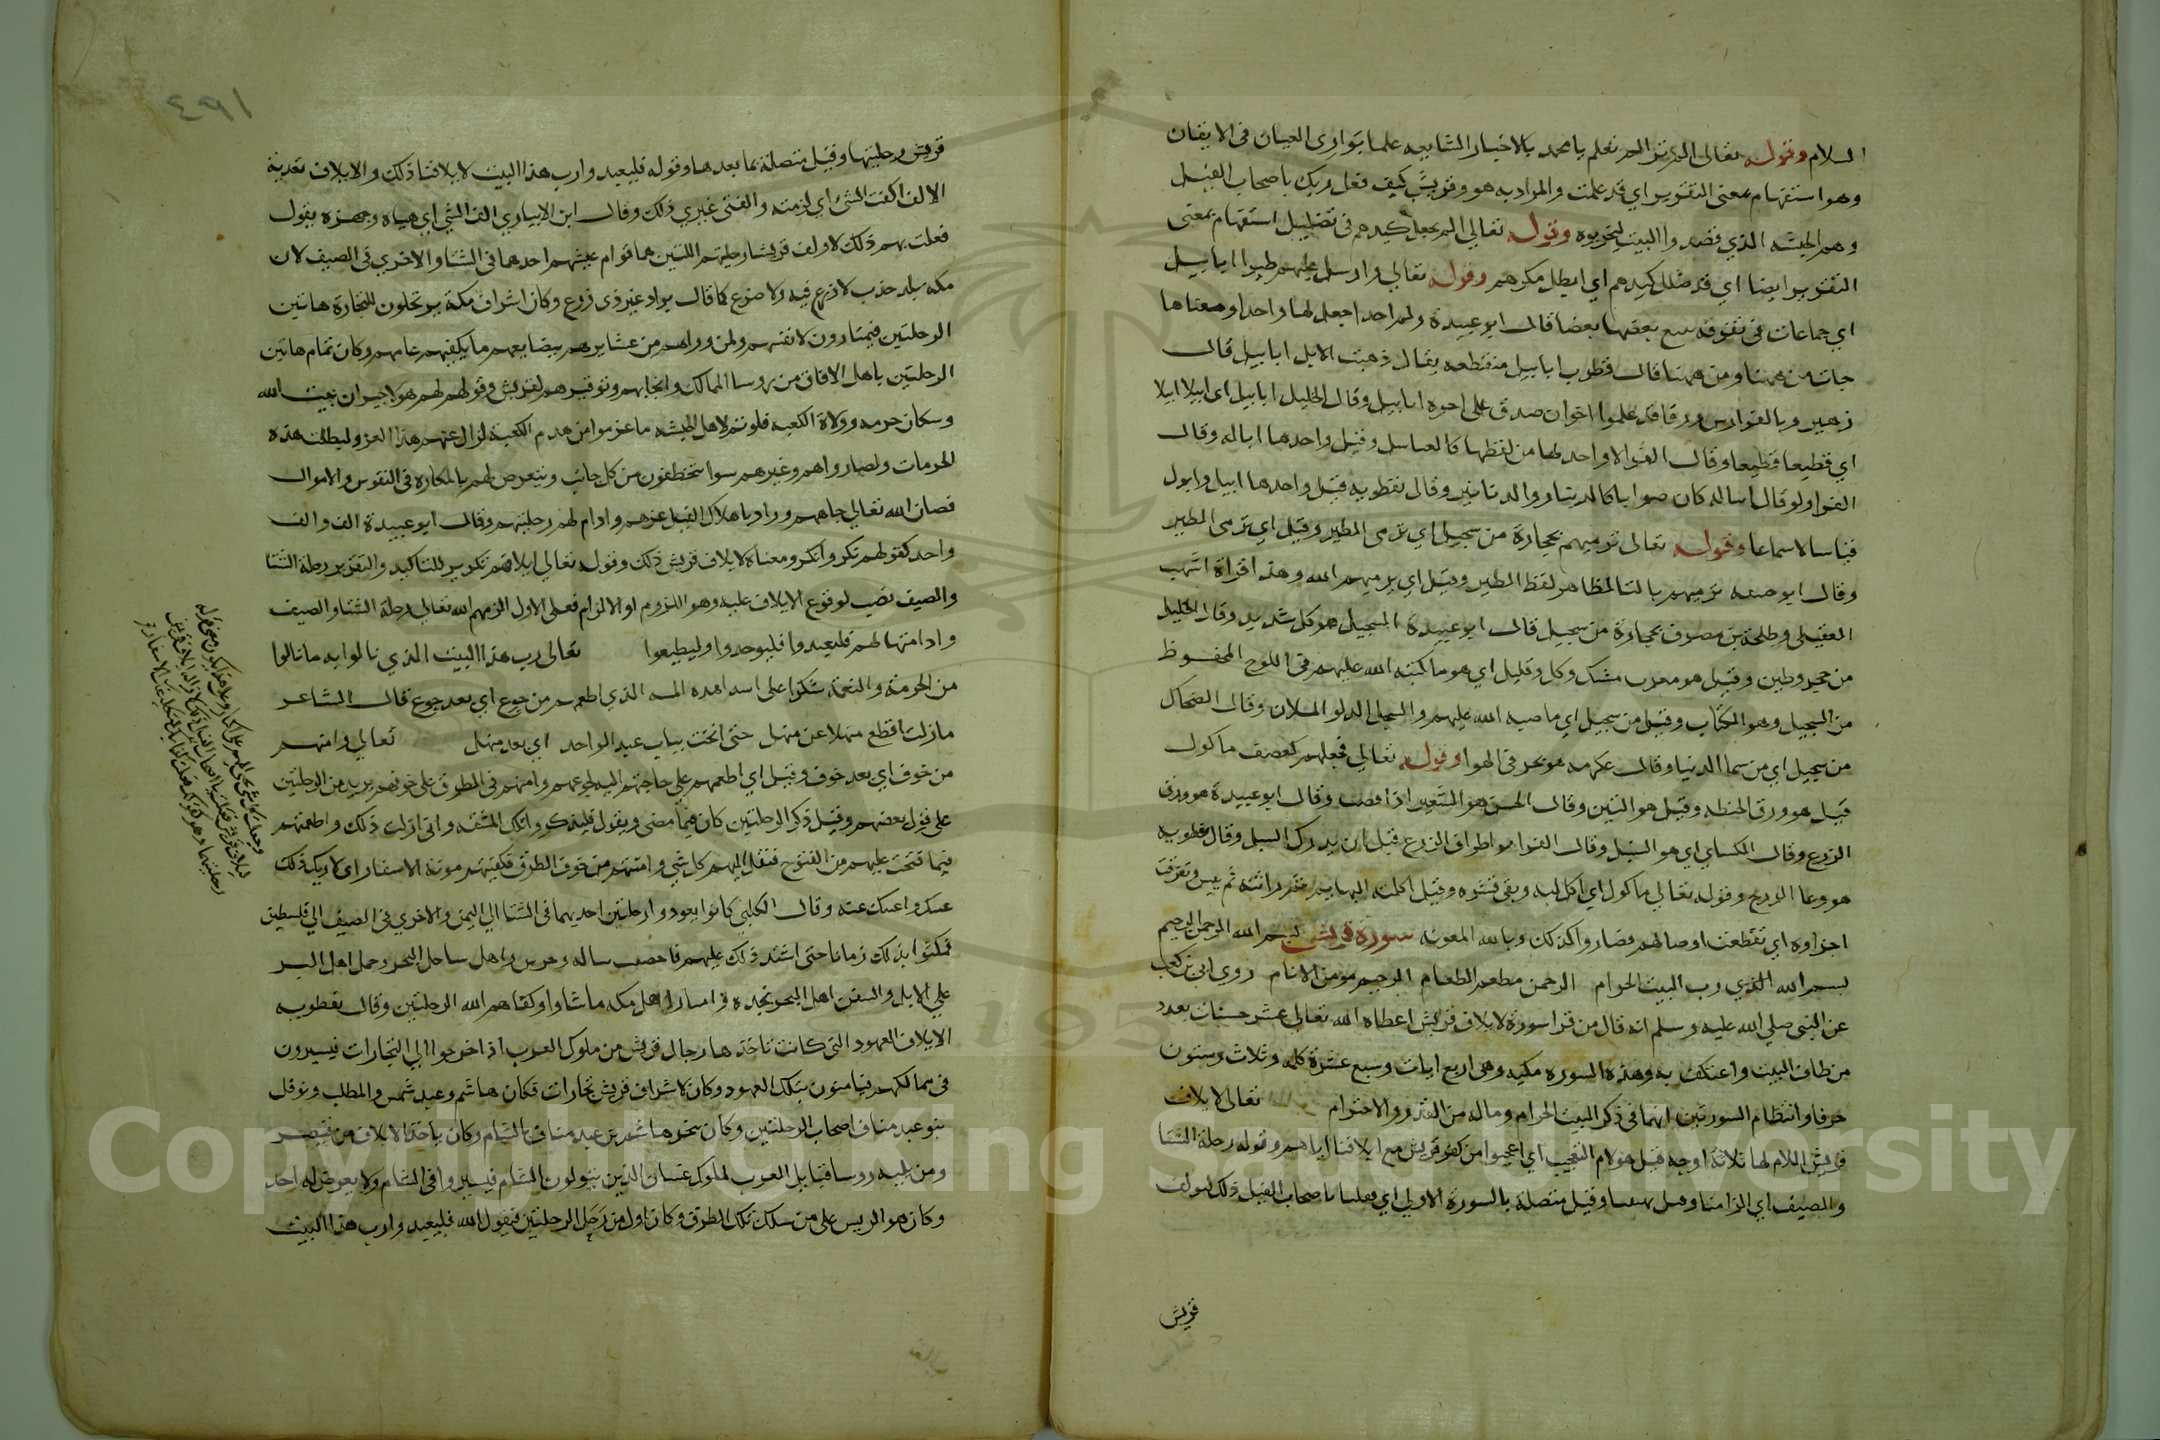 السلام وقوله تعالى الم تر الم تعلم يا محمد بالاخبار الشايعه علما يوازى العيان فى الايقان
وهو استفهام بمعنى التقرير اى قد علمت والمراد به هو وقريش كيف فعل ربك باصحاب الفيل
وهم الحبشه الذي قصدوا البيت ليخربوه وقوله تعالى الم يجعل كيدهم فى تضليل استفهام بمعنى
التقرير ايضا اي قد ضلل كيدهم اي ابطل مكرهم وقوله تعالى وارسل عليهم طيرا ابابيل
اي جماعات فى تفرقه يتبع بعضها بعضا قال ابو عبيدة ولم ار احدا جعل لها واحدا ومعناها
جات من ههنا ومن ههنا قال قطرب ابابيل منقطعه يقال ذهبت الابل ابابيل قال
زهير وبالفوارس من ورقا قد علموا اخوان صدق على احوه ابابيل وقال الخليل ابابيل اى ابيلا ابيلا
اي قطيعا قطيعا وقال الفرا لا واحد لها من لفظها كالعباسل وقيل واحدها اباله وقال
الفرا ولو قال اساله كان صوابا كالدينار والدنانير وقال نفطويه قيل واحدها ابيل وابول
قياسا لا سماعا وقوله تعالى ترميهم بحجارة من سجيل اي ترمى الطير وقيل اي ترمى الطير
وقال ابو حنيفه ترميهم بالتا لظاهر لفظ الطير وقيل اي يرميهم الله وهذه قراة اشهب
العقيلى وطلحة بن مصرف بحجارة من سجيل قال ابو عبيدة السجيل هو كل شديد وقال الخليل
من حجر وطين وقيل هو معرب سنك وكل وقليل اي هو ما كتبه الله عليهم فى اللوح المحفوظ
من السجيل وهو الكتاب وقيل من سجيل اي ما صبه الله عليهم والسجل الدلو الملان وقال الضحاك
من سجيل اي من سما الدنيا وقال عكرمه هو بحر فى الهوا وقوله تعالى فجعلهم كعصف ماكول
قيل هو ورق الحنطه وقيل هو التبن وقال الحسن هو الشعير اذا قصب وقال ابو عبيدة هو ورق
الزرع وقال الكساي اي هو السنبل وقال الفرا هو اطراف الزرع قبل ان يدرك السبل وقال نفطويه
هو وعا الزرع وقوله تعالى ماكول اي اكل لبه وبقى قشره وقيل اكلته البهايم ثم راثته ثم يبس وتفرقت
اجزاوه اي تقطعت اوصالهم فصاروا كذلك وبالله المعونه سورة قريش بسم الله الرحمن الرحيم
بسم الله الذي رب البيت الحرام الرحمن مطعم الطعام الرحيم مومن الانام روى ابى بن كعب
عن النبى صلى الله عليه وسلم انه قال من قرا سورة لايلاف قريش اعطاه الله تعالى عشر حسنات بعدد
من طاف البيت واعتكف به وهذه السوره مكيه وهى اربع ايات وسبع عشرة كلمه وثلاث وستون
حرفا وانتظام السورتين انهما فى ذكر البيت الحرام وماله من القدر والاحترام تعالى لايلاف
قريش اللام لها ثلاثة اوجه قيل هو لام التعجب اي اعجبوا من كفر قريش مع ايلافنا اياهم وقوله رحلة الشتا
والصيف اي الزامنا وقيل متصلة بالسورة الاولى اي فعلنا باصحاب الفيل ذلك لتولف
قريش
قريش رحلتيها وقيل متصلة بما بعدها وقوله فليعبدوا رب هذا البيت لايلافنا ذلك والايلاف تعدية
الالف الفت الشئ اي لزمته والفنى غيري ذلك وقال ابن الانباري الف الشي اي هياه وجهزه يقول
فعلت بهم ذلك لاولف قريشا رحلتهم اللتين هما قوام عيشهم احدها فى الشتا والاخري فى الصيف لان
مكه بلد جدب لا زرع فيه ولا ضرع كما قال بواد غير ذى زرع وكان اشراف مكة يرتحلون للتجارة هاتين
الرحلتين فيمتارون لانفسهم ولمن وراهم من عشايرهم ببضايعهم ما يكفيهم عامهم وكان تمام هاتين
الرحلتين باهل الافاق من روسا الممالك وانجابهم وتوقيرهم لقريش وقولهم لهم هولا جيران بيت الله
وسكان حرمه وولاة الكعبه فلو تم لاهل الحبشه ما عزموا من هدم الكعبة لزال عنهم هذا العز ولبطلت هذه
الحرمات ولصاروا هم وغيرهم سوا يتخطفون من كل جانب ويتعرض لهم بالمكاره فى النفوس والاموال
فصان الله تعالى جاههم وزاد باهلاك الفيل عزهم وادام لهم رحلتهم وقال ابو عبيدة الف والف
واحد كقولهم نكر وانكر ومعناه لايلاف قريش ذلك وقوله تعالى ايلافهم تكرير للتاكيد والتقرير رحلة الشتا
والصيف نصب لوقوع الايلاف عليه وهو اللزوم او الالزام فعلى الاول الزمهم الله تعالى رحلة الشتا والصيف
وادامتها لهم فليعبدوا فليوحدوا وليطيعوا تعالى رب هذا البيت الذي نالوا به ما نالوا
من الحرمة والنعمة شكرا على اسدا هذه الذي اطعمهم من جوع اي بعد جوع قال الشاعر
مازلت اقطع منهلا عن منهل حتى انخت بباب عبد الواحد اي بعد منهل تعالى وامنهم
من خوف اي بعد خوف وقيل اي اطعمهم على حاجتهم اليه لجوعهم وامنهم فى الطرق على خوفهم يريد من الرحلتين
على قول بعضهم وقيل ذكر الرحلتين كان فيما مضى ويقول فليذكروا تلك المشقه وانى ازلت ذلك واطعمتهم
فيما فتحت عليهم من الفتوح فنقل اليهم كل شي وامنتهم من خوف الطرق فكفيتهم مونة الاسفار
وقال الكلبي كانوا يعودوا رحلتين احديهما فى الشتا الى اليمن والاخرى فى الصيف الى فلسطين
فمكثوا بذلك زمانا حتى اشتد ذلك عليهم فاخصب ساحل البحر وحمل اهل البر
على الابل والسفن اهل البحر فامتار اهل مكه ما شاوا وكفاهم الله الرحلتين وقال نفطويه
الايلاف العهود التى كانت تاخذها رجال قريش من ملوك العرب اذا خرجوا الى التجارات فيسيرون
فى ممالكهم فيامنون بتلك العهود وكان لاشراف قريش تجارات فكان هاشم وعبد شمس والمطلب ونوفل
بنو عبد مناف اصحاب الرحلتين وكان متجر هاشم بن عبد مناف بالشام وكان ياخذ الايلاف من قيصر
ومن يليه روسا قبايل العرب لملوك غسان الذين ينزلون الشام فيسيروا فى الشام ولا يعرض له احد
وكان هو الريس على من سلك تلك الطرق وكان اول من رحل الرحلتين فيقول الله فليعبدوا رب هذا البيت